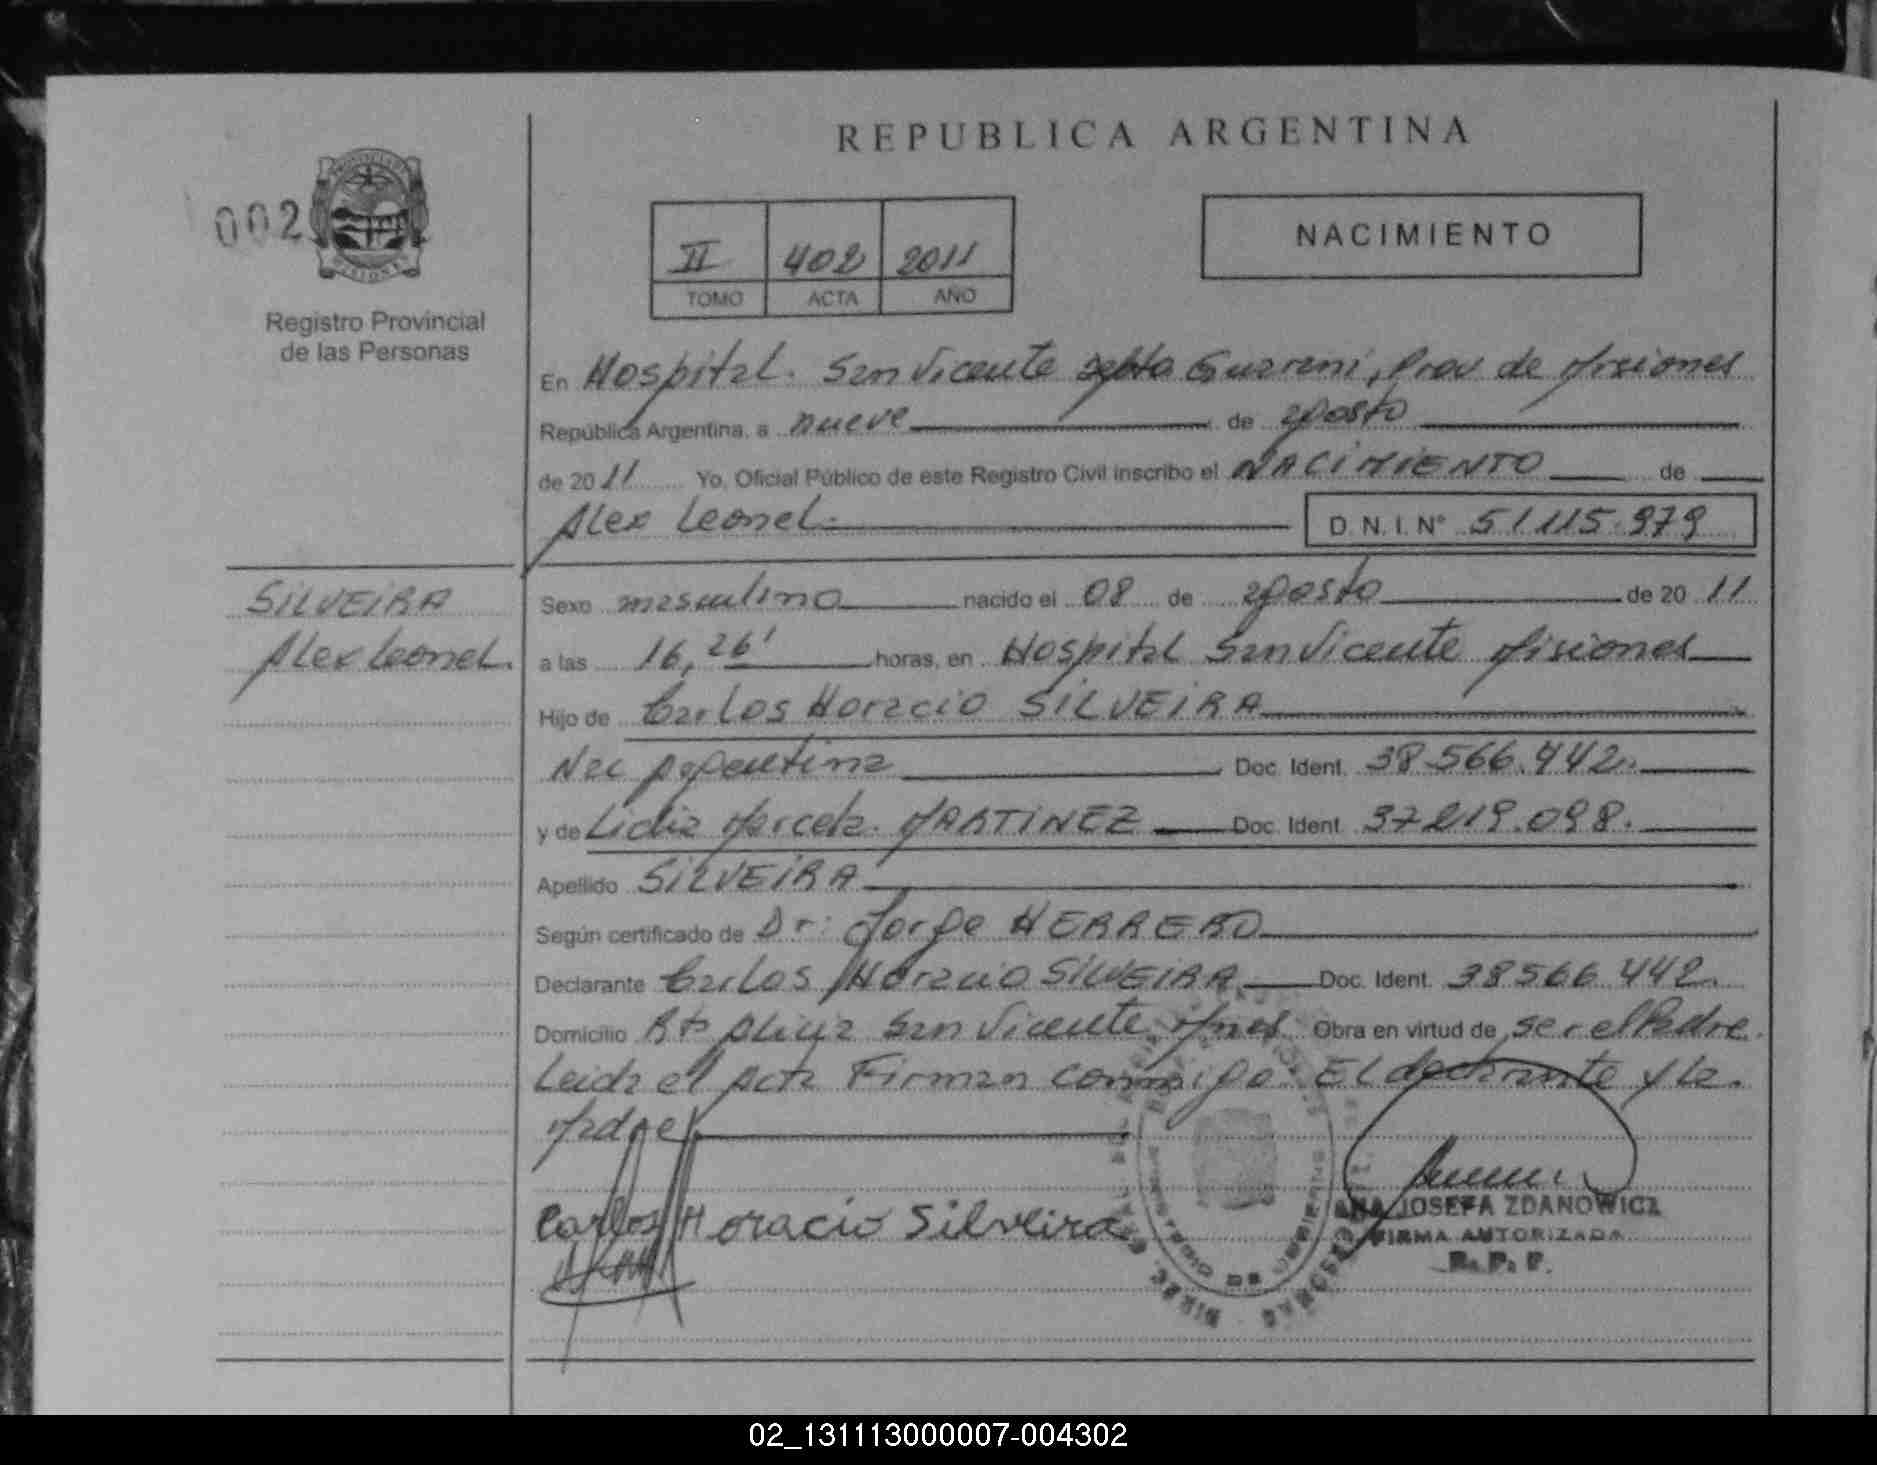 REPUBLICA ARGENTINA
002
PROVINCIA DE
MISIONES
Registro Provincial
de las Personas
II 402 2011
TOMO ACTA AÑO
NACIMIENTO
En Hospital. San Vicente Dpto Guarani, Prov de Misiones
República Argentina, a nueve de agosto
de 2011 Yo, Oficial Público de este Registro Civil inscribo el NACIMIENTO de
Alex Leonel. D.N.I.Nº 51.115.979
SILVEIRA
Alex Leonel.
Sexo masculino nacido el 08 de agosto de 2011
a las 16,26' horas, en Hospital San Vicente Misiones
Hijo de Carlos Horacio SILVEIRA
Nac Argentina Doc. Ident. 38.566.442.
y de Lidia Marcela. MARTINEZ Doc. Ident. 37219.098.
Apellido SILVEIRA
Según certificado de Dr: Jorge HERRERO
Declarante Carlos Horacio SILVEIRA Doc. Ident. 38566.442.
Domicilio Rta Alicia San Vicente Mnes. Obra en virtud de ser el Padre.
Leida el Acta Firman conmigo. El declarante y la.
Madre
Carlos Horacio Silveira
ANA JOSEFA ZDANOWICZ
FIRMA AUTORIZADA
R. P. P.
02_131113000007-004302